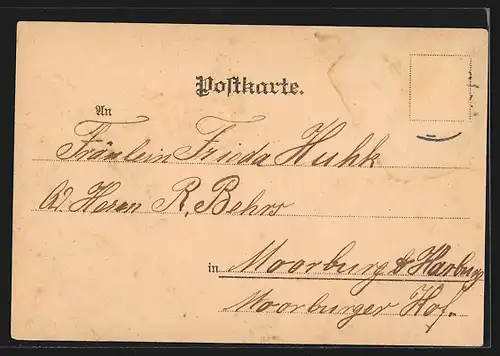 Postkarte.
An
Fräulein Frieda Huhk
Herrn R. Behrs
in Moorburg b/ Harburg
Moorburger Hof.